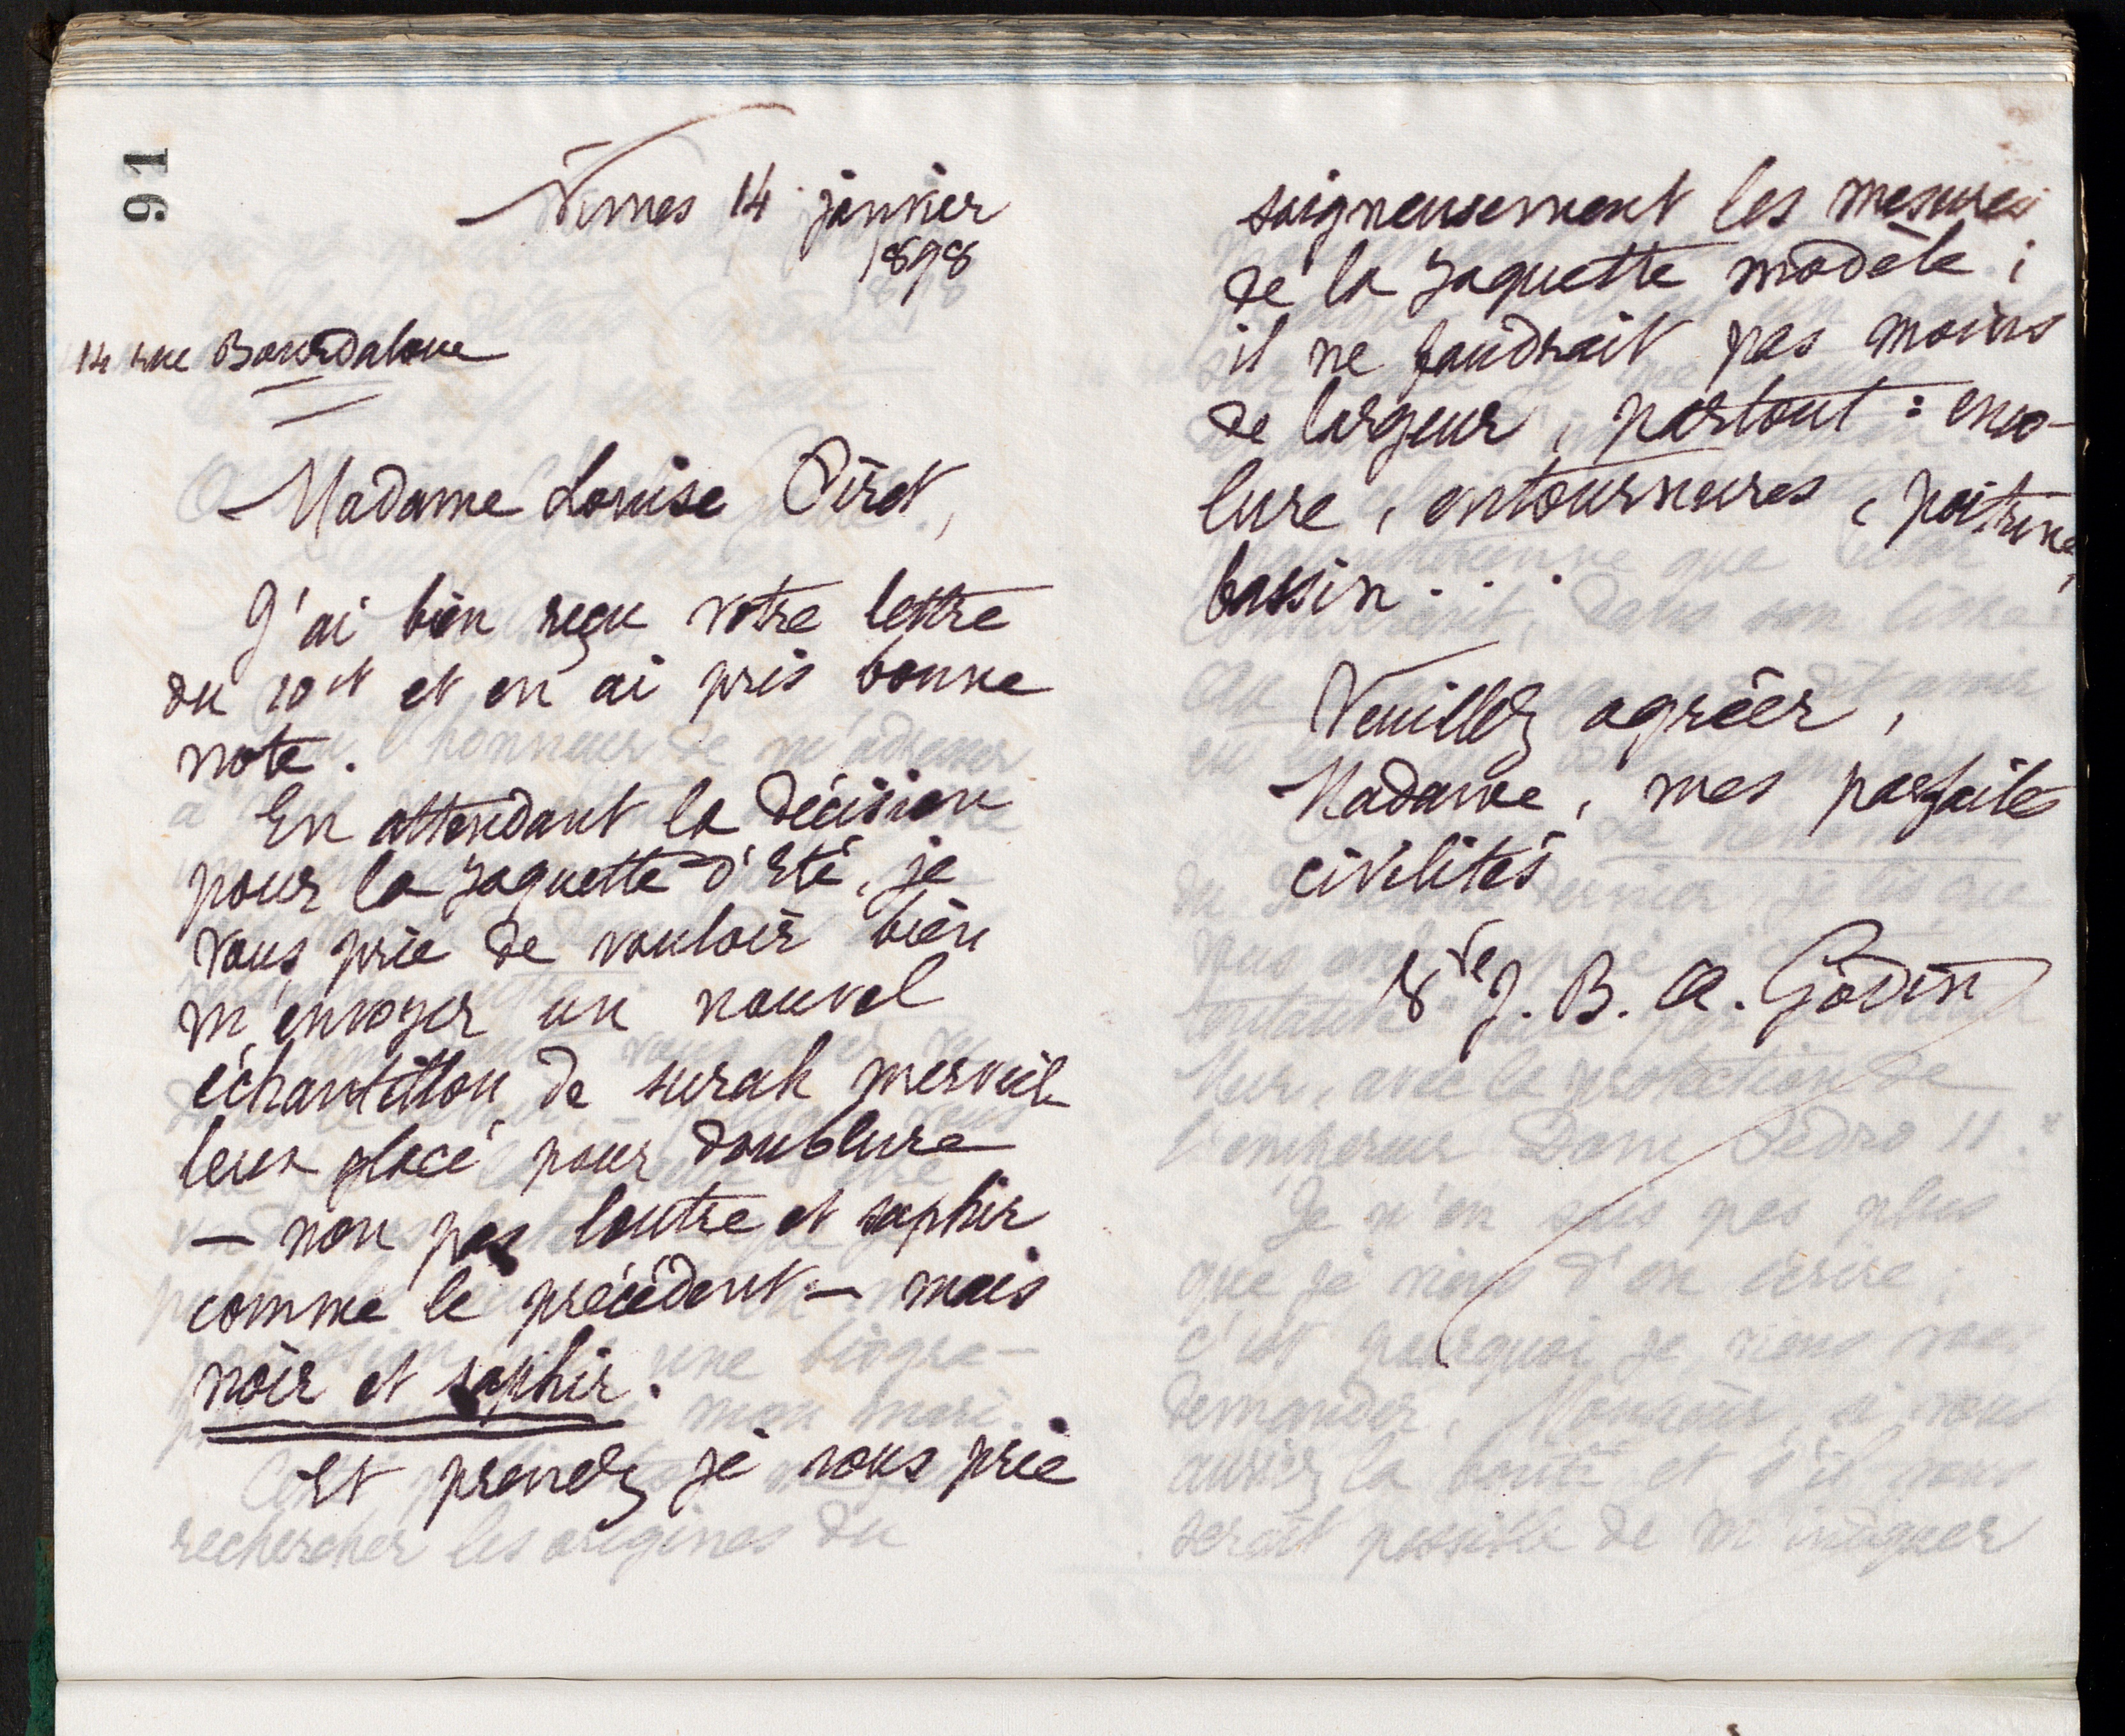 91
Nimes 14 janvier
1898
14 rue Bourdaloue
Madame Louise Piret,
J'ai bien reçu votre lettre
du 10 ct et en ai pris bonne
note.
En attendant la décision
pour la jaquette d'Eté, je
vous prie de vouloir bien
m'envoyer un nouvel
échantillon de surah merveil
leux glacé pour doublure
— non pas loutre et saphir
comme le précédent — mais
noir et saphir.
Et prenez je vous prie
soigneusement les mesures
de la jaquette modèle ;
il ne faudrait pas moins
de largeur, partout : enco-
lure, entournures, poitrine,
bassin...
Veuillez agréer,
Madame, mes parfaites
civilités
Vve J. B. A. Godin